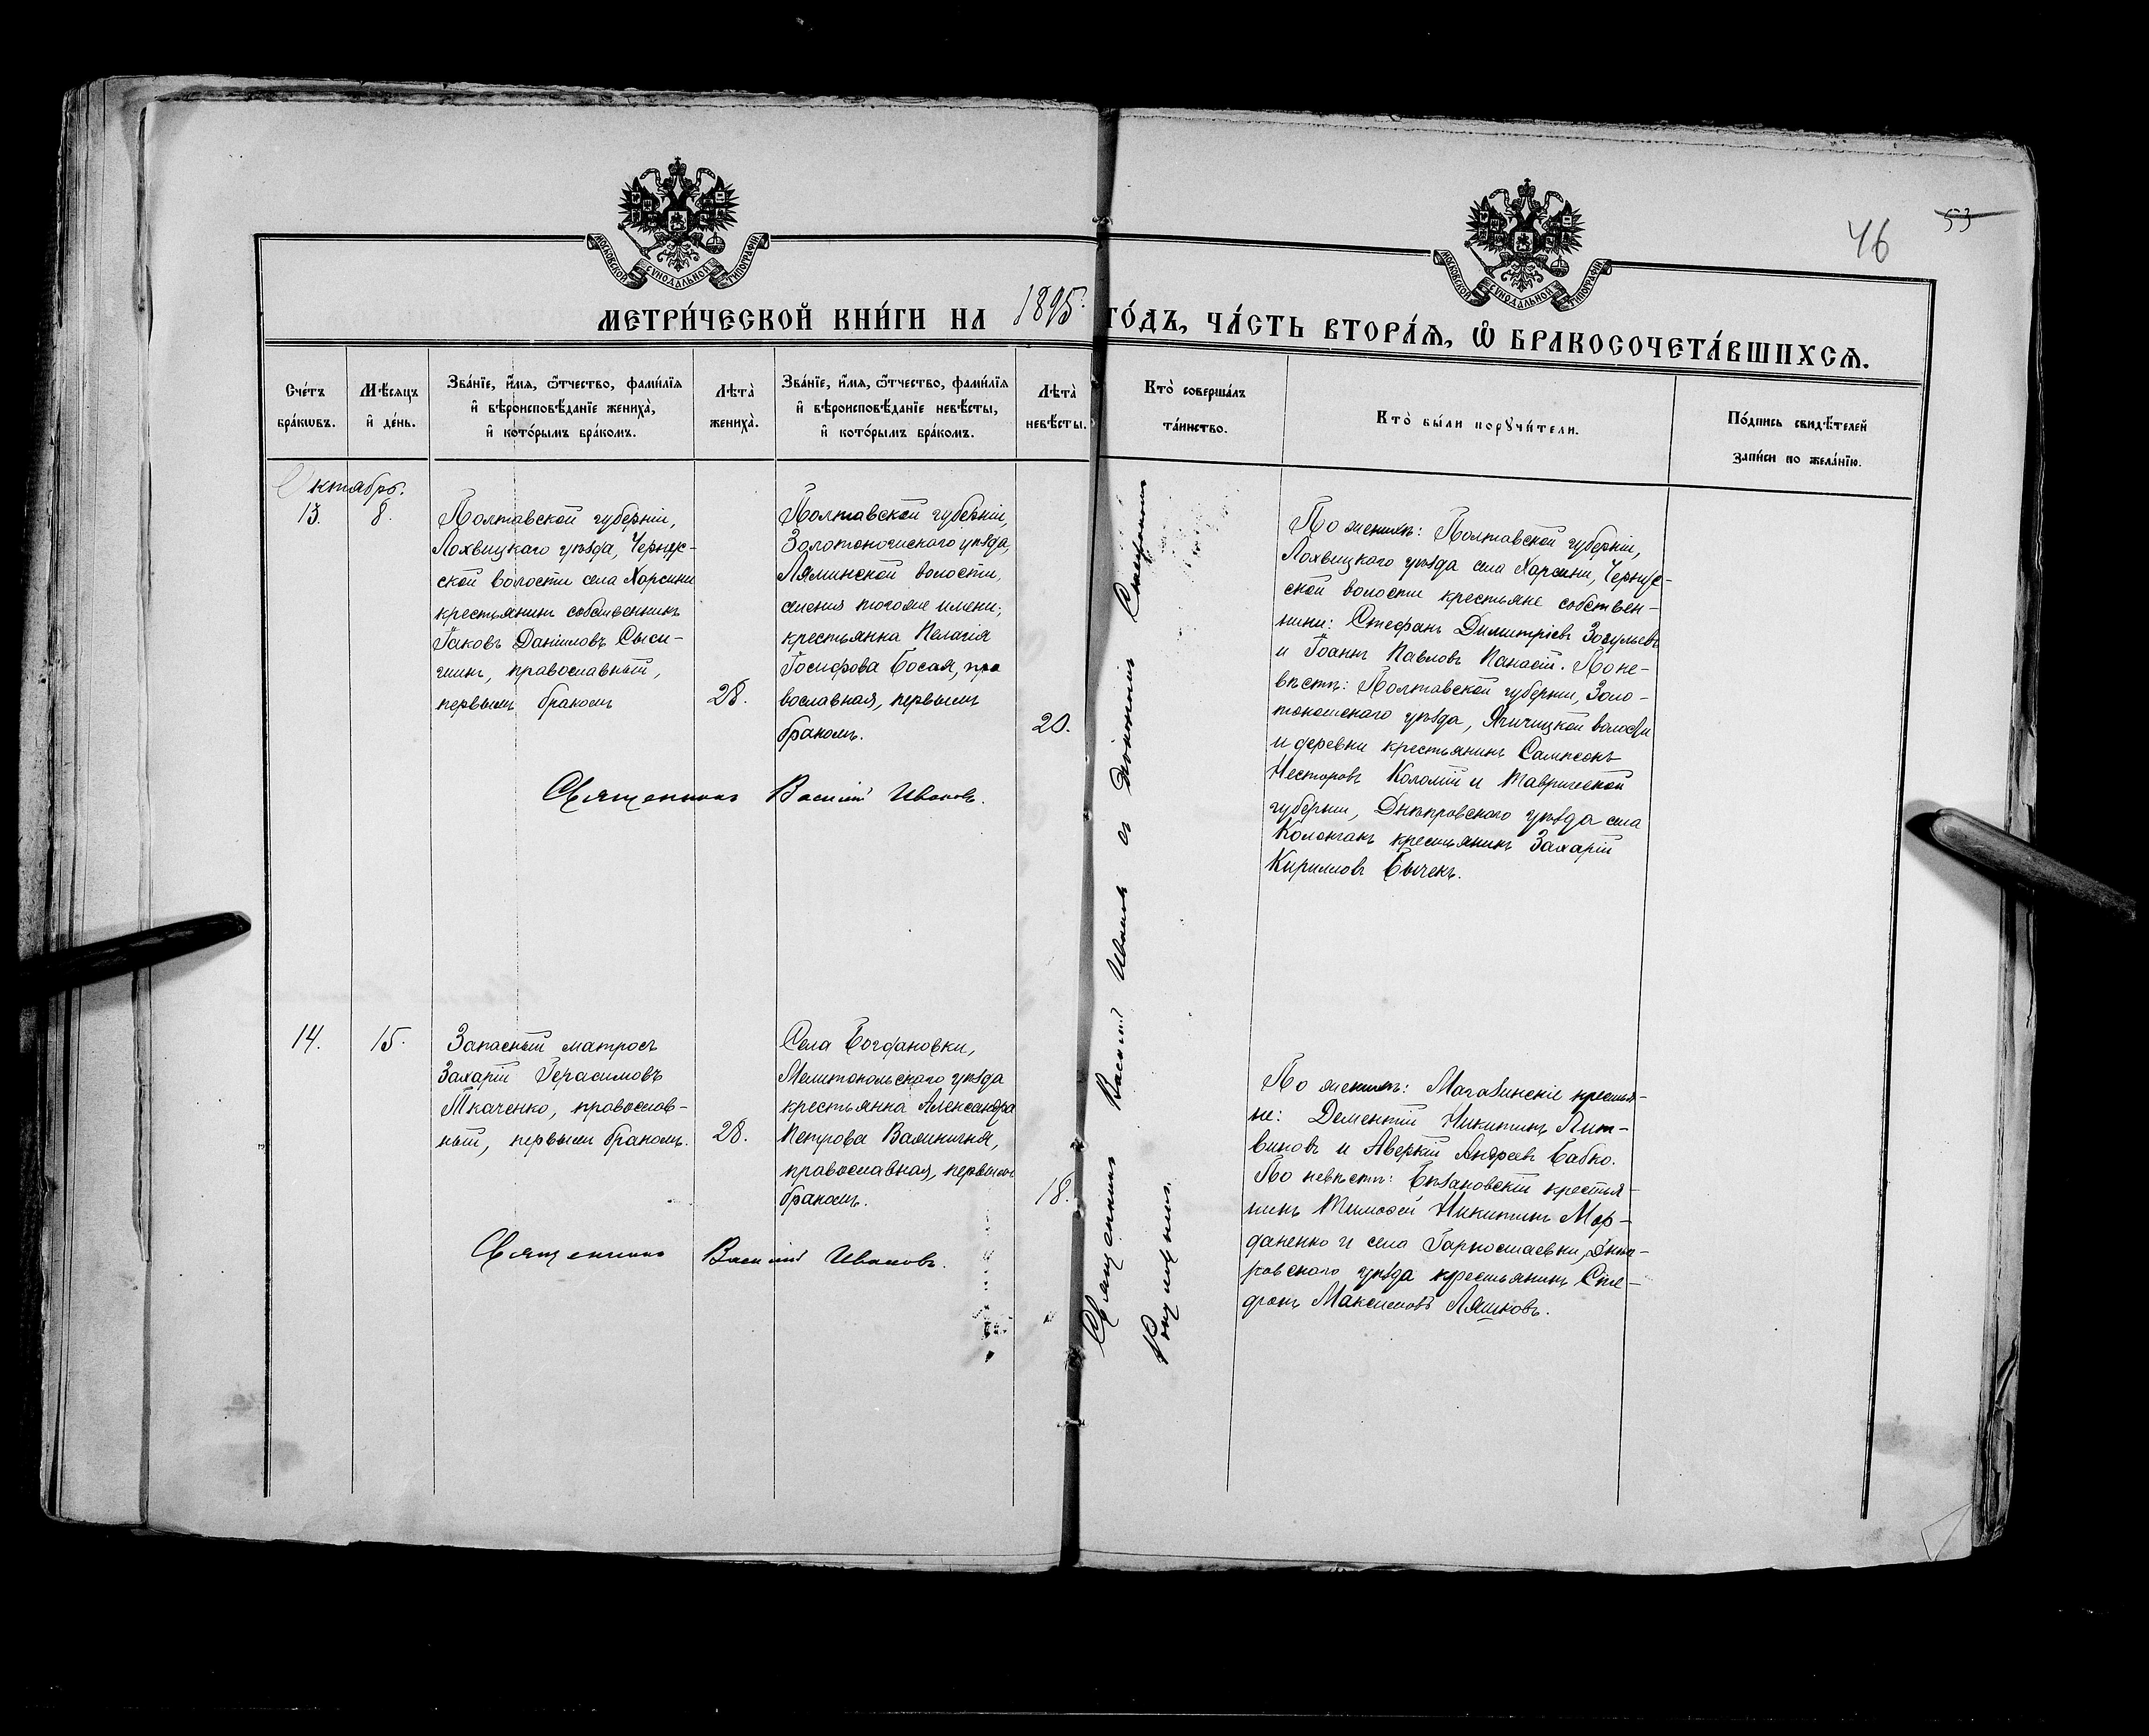 46
53
МОСКОВСКОЙ СѴНОДАЛЬНОЙ ТИПОГРАФІИ
МОСКОВСКОЙ СѴНОДАЛЬНОЙ ТИПОГРАФІИ
МЕТРИ́ЧЕСКОЙ КНИ́ГИ НА 1895. ГО́ДЪ, ЧА́СТЬ ВТОРА́Ѧ, Ѽ БРАКОСОЧЕТА́ВШИХСѦ.
Сче́тъ бра́кѡвъ.
Мѣ́сѧцъ и҆ де́нь.
Зва́нїе, и҆́мѧ, ѻ҆́тчество, фами́лїѧ и҆ вѣроисповѣ́данїе жениха̀, и҆ кото́рымъ бра́комъ.
Лѣта̀ жениха̀.
Зва́нїе, и҆́мѧ, ѻ҆́тчество, фами́лїѧ и҆ вѣроисповѣ́данїе невѣ́сты, и҆ кото́рымъ бра́комъ.
Лѣта̀ невѣ́сты.
Кто̀ соверша́лъ та́инство.
Кто̀ бы́ли порꙋчи́тели.
По́дпись свидѣ́телей за́писи по жела́нїю.
Октябрь.
13.
8.
Полтавской губерніи,
Лохвицкаго уѣзда, Чернус-
ской волости села Харсики
крестьянинъ собственникъ
Іаковъ Даніиловъ Сыси-
чникъ, православный,
первымъ бракомъ
28.
Полтавской губерніи,
Золотоношскаго уѣзда,
Лялинской волости,
селенія тогоже имени;
крестьянка Пелагія
Іосифова Босая, пра
вославная, первымъ
бракомъ.
20.
Священникъ Василій Ивановъ.
По женихѣ: Полтавской губерніи,
Лохвицкаго уѣзда села Харсики, Чернус-
ской волости крестьяне собствен-
ники: Стефанъ Димитріевъ Зозульевъ
и Іоаннъ Павловъ Панасій. По не-
вѣстѣ: Полтавской губерніи, Золо-
тоношскаго уѣзда, волости
и деревни крестьянинъ Сампсонъ
Несторовъ Коломій и Таврической
губерніи, Днѣпровскаго уѣзда села
Колончакъ крестьянинъ Захарій
Кирилловъ Бычекъ.
Священникъ Василій Ивановъ съ Діакономъ Стефаномъ
14.
15.
Запасный матросъ
Захарій Герасимовъ
Ткаченко, православ-
ный, первымъ бракомъ.
28.
Села Богдановки,
Мелитопольскаго уѣзда
крестьянка Александра
Петрова Калиничня,
православная, первымъ
бракомъ.
18.
Священникъ Василій Ивановъ.
По женихѣ: Магазинскіе крестья-
не: Дементій Никитинъ Лит-
виновъ и Аверкій Андреевъ Бабко.
По невѣстѣ: крестья-
нинъ Тимофей Никитинъ Мор-
даненко и села Горностаевки, Днѣп-
ровскаго уѣзда крестьянинъ Сте-
фанъ Максимовъ Ляшковъ.